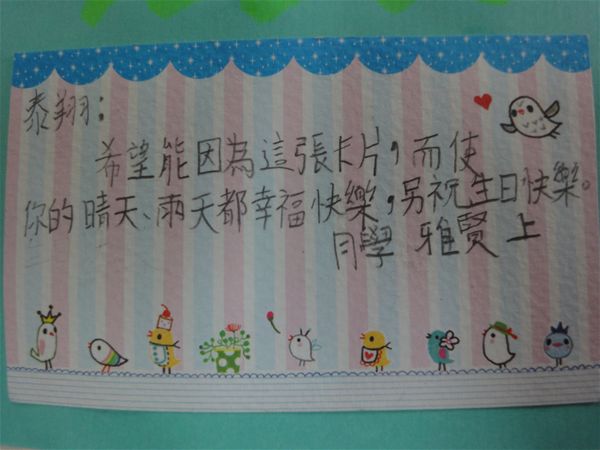 泰翔：
希望能因為這張卡片，而使
你的晴天、雨天都幸福快樂，另祝生日快樂。
同學 雅賢 上